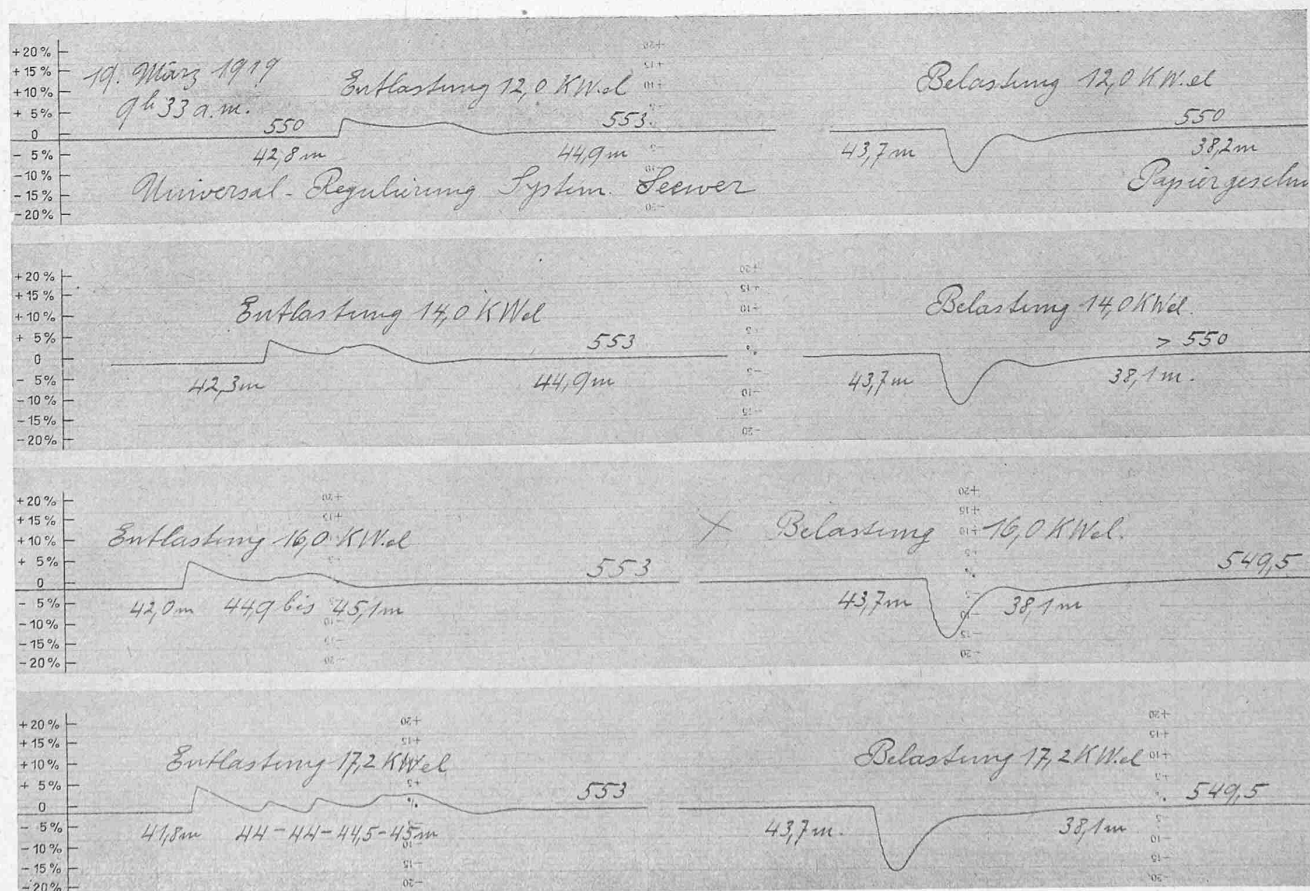 +20%
+15%
+10%
+ 5%
0
- 5%
-10%
-15%
-20%
19. März 1919
9h 33 a.m.
Entlastung 12,0 KW.el
550
553.
42,8 m
44,9 m
Belastung 12,0 KW.el
550
43,7 m
38,2 m
Universal-Regulierung System. Seewer
Papiergeschw
+20%
+15%
+10%
+ 5%
0
- 5%
-10%
-15%
-20%
Entlastung 14,0 KWel
553
42,3 m
44,9 m
Belastung 14,0 KWel.
> 550
43,7 m
38,1 m.
+20%
+15%
+10%
+ 5%
0
- 5%
-10%
-15%
-20%
Entlastung 16,0 KW.el
553
42,0 m 44,9 bis 45,1 m
Belastung 16,0 KW.el.
549,5
43,7 m
38,1 m
+20%
+15%
+10%
+ 5%
0
- 5%
-10%
-15%
-20%
Entlastung 17,2 KW.el
553
41,8 m 44-44-44,5-45 m
Belastung 17,2 KW.el
549,5
43,7 m.
38,1 m